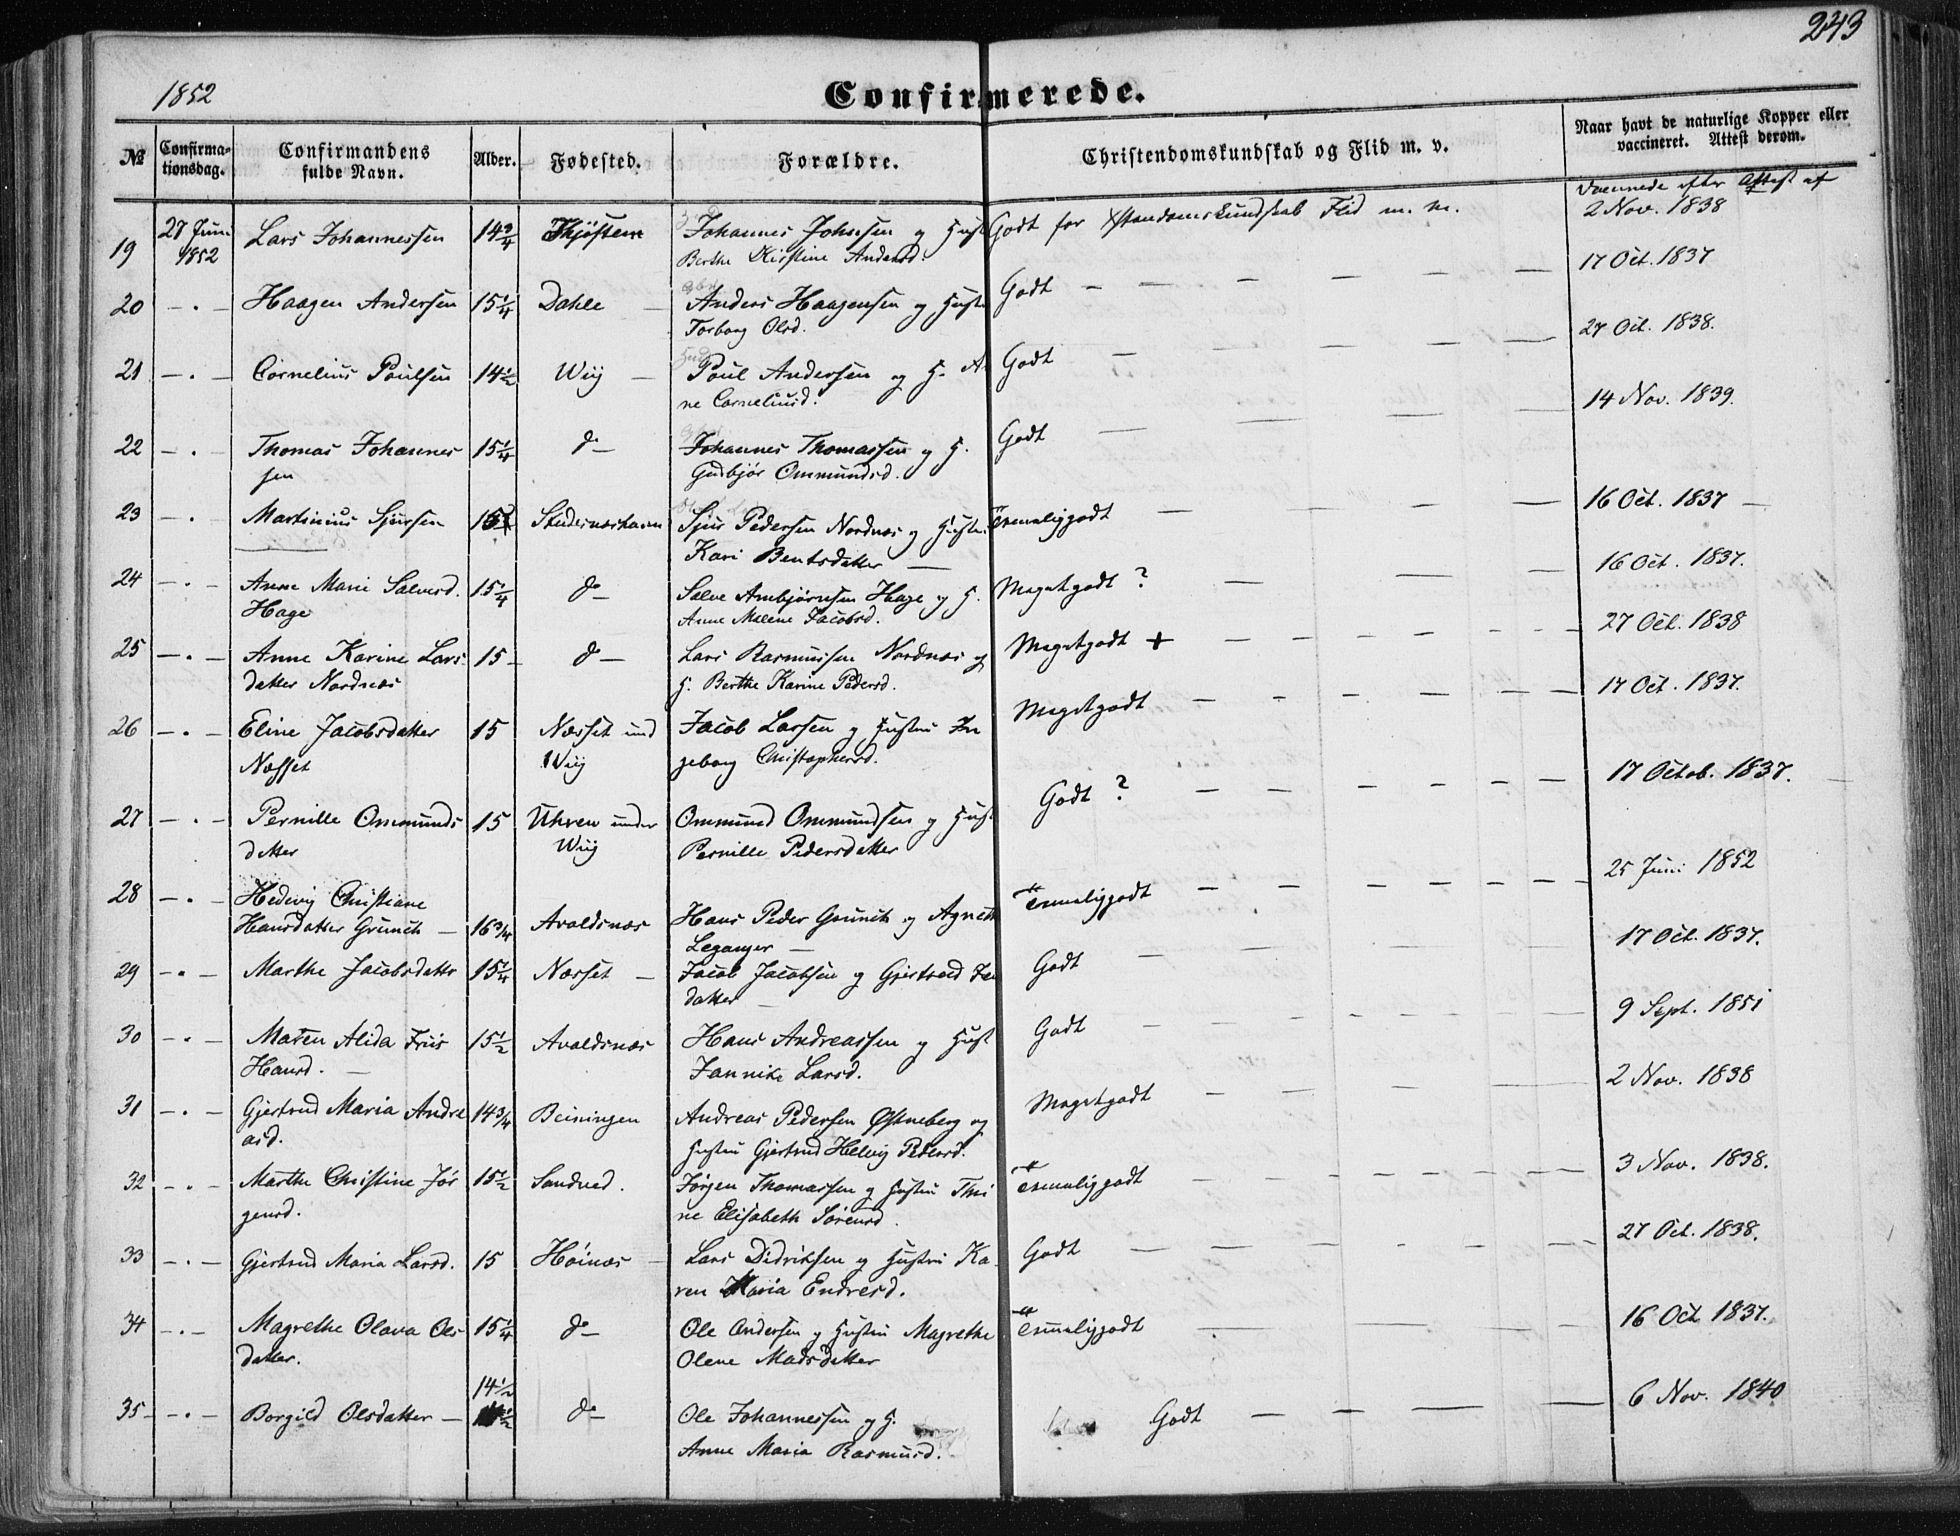 243
1852
Confirmerede.
№ Confirmationsdag. Confirmandens fulde Navn. Alder. Fødested. Forældre. Christendomskundskab og Flid m. v. Naar havt de naturlige Kopper eller vaccineret. Attest derom.
efter Attest af
19 27 Juni Lars Johannessen 14 3/4 Johannes Johnsen og Hust Godt for Xstendomskundskab Flid m. m. 2 Nov. 1838
1852 Berthe Kirstine Andersd.
20 - " - Haagen Andersen 15 1/4 Dahle Anders Haagensen og Hustr Godt — 17 Oct. 1837
Torborg Olsd.
21 - " - Cornelius Poulsen 14 1/2 Wiig Poul Andersen og H. A Godt — 27 Oct. 1838.
ne Corneliusd.
22 - " - Thomas Johannes 15 1/4 do Johannes Thomassen og H. Godt — 14 Nov. 1839.
sen Gudbjør Ommundsd.
23 - " - Martinius Sjursen Studesneshavn Sjur Pedersen Nordnes og Hustr. Temmeliggodt — 16 Oct. 1837
Kari Bentsdatter
24 - " - Anne Marie Salvesd. 15 1/4 do Salve Ambjørnsen Hage og H. Megetgodt ? — 16 Oct. 1837.
Hage Anne Malene Jacobsd.
25 - " - Anne Karine Lars 15 do Lars Rasmussen Nordnes og Megetgodt + — 27 Oct. 1838
datter Nordnes H. Berthe Karine Pedersd.
26 - " - Eline Jacobsdatter 15 Næsset und Jacob Larsen og Hustru In Megetgodt — 17 Oct. 1837.
Næsset Wiig geborg Christophersd.
27 - " - Pernille Ommunds 15 Uhren under Ommund Ommundsen og Hust Godt ? — 17 Octob. 1837.
datter Wiig Pernille Pedersdatter
28 - " - Hedevig Christiane
Hansdatter Grunch 16 3/4 Avaldsnæs Hans Peder Grunch og Agneth Temmeliggodt — 25 Juni 1852
Leganger
29 - " - Marthe Jacobsdatter 15 1/4 Næsset Jacob Jacobsen og Gjertrud Godt — 17 Oct. 1837.
datter
30 - " - Maren Alida Friis 15 1/2 Avaldsnæs Hans Andreassen og Hust Godt — 9 Sept. 1851
Hansd. Jannike Larsd.
31 - " - Gjertrud Maria Andre 14 3/4 Beiningen Andreas Pedersen Østneberg og Megetgodt — 2 Nov. 1838
asd. Hustru Gjertrud Helvig Pedersd.
32 - " - Marthe Christine Jør 15 1/2 Sandved. Jørgen Thomassen og Hustru Thri Temmeliggodt — 3 Nov. 1838.
gensd. ne Elisabeth Sørensd.
33 - " - Gjertrud Maria Larsd. 15 Høinæs Lars Didriksen og Hustru Ka Godt — 27 Oct. 1838.
ren Maria Endresd.
34 - " - Magrethe Olava Ols 15 1/4 do Ole Andersen og Hustru Magrethe Temmeliggodt — 16 Oct 1837.
datter. Olene Madsdatter
14 1/2
35 - " - Borgild Olsdatter do Ole Johannessen og H. Godt — 6 Nov. 1840
Anne Maria Rasmusd.